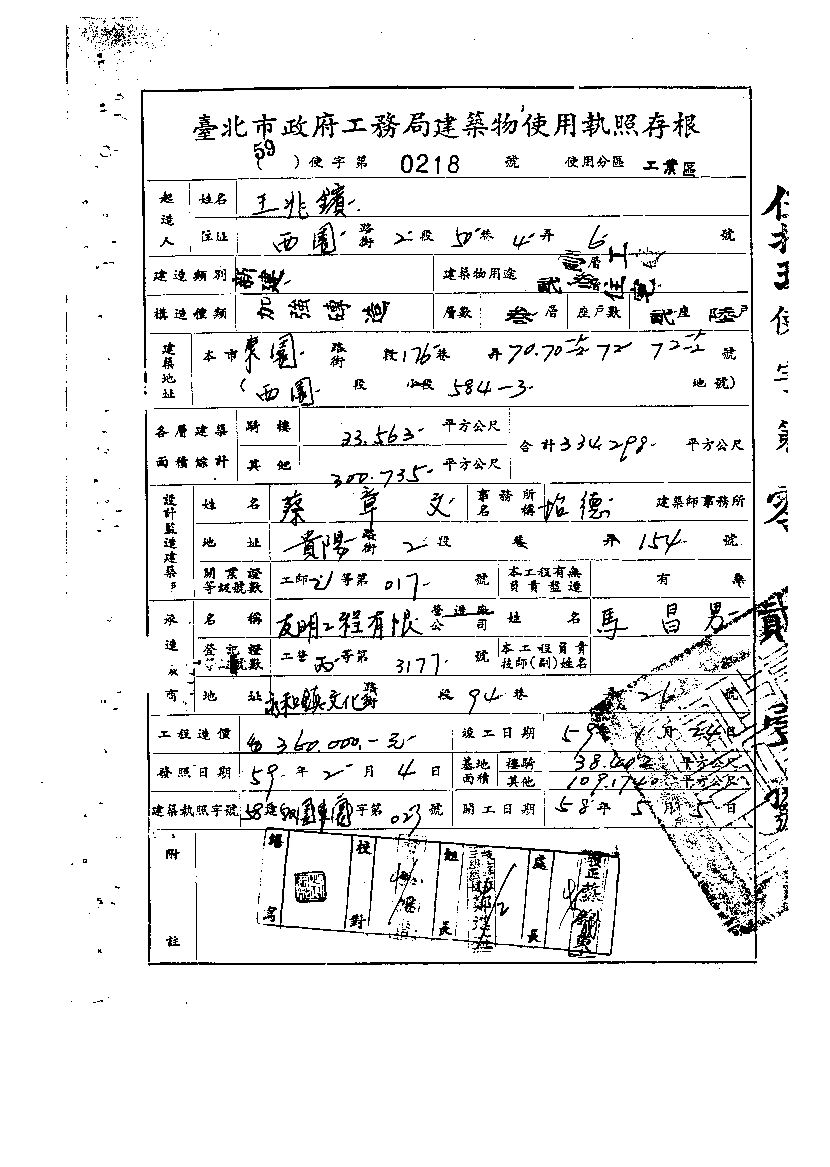 臺北市政府工務局建築物使用執照存根
(59)使字第 0218 號 使用分區 工業區
起造人 姓名 王兆鑌
住址 西園路街 2段 50巷 4弄 6 號
建造類別 新建 建築物用途 壹層工 貳叁層住宅
構造種類 加強磚造 層數 叁層 座戶數 貳座 陸戶
建築地址 本市東園路街 段176巷 弄70.70-1/2 72 72-1/2 號
(西園 段 小段 584-3 地號)
各層建築面積綜計 騎樓 33.563 平方公尺 合計334.298 平方公尺
其他 300.735 平方公尺
設計監造建築 姓名 蔡章文 事務所名稱 建築師事務所
地址 貴陽路街 2段 巷 弄 154 號
開業證等級號數 工師 等第 017 號 本工程有無負責監造 有 無
承造 名稱 友明工程有限營造廠公司 姓名 馬昌男
登記證號數 工營丙等第 3177 號 本工程負責技師(副)姓名
地址 永和鎮文化路街 段 94巷 26 號
工程造價 360,000.-元 竣工日期 59 1月24日
發照日期 59年2月4日 基地面積 樓騎 38.442 平方公尺
其他 109.1740 平方公尺
建築執照字號 58建 字第 023 號 開工日期 58年5月5日
附註
繕寫 校對 組長 處長
使字第零貳